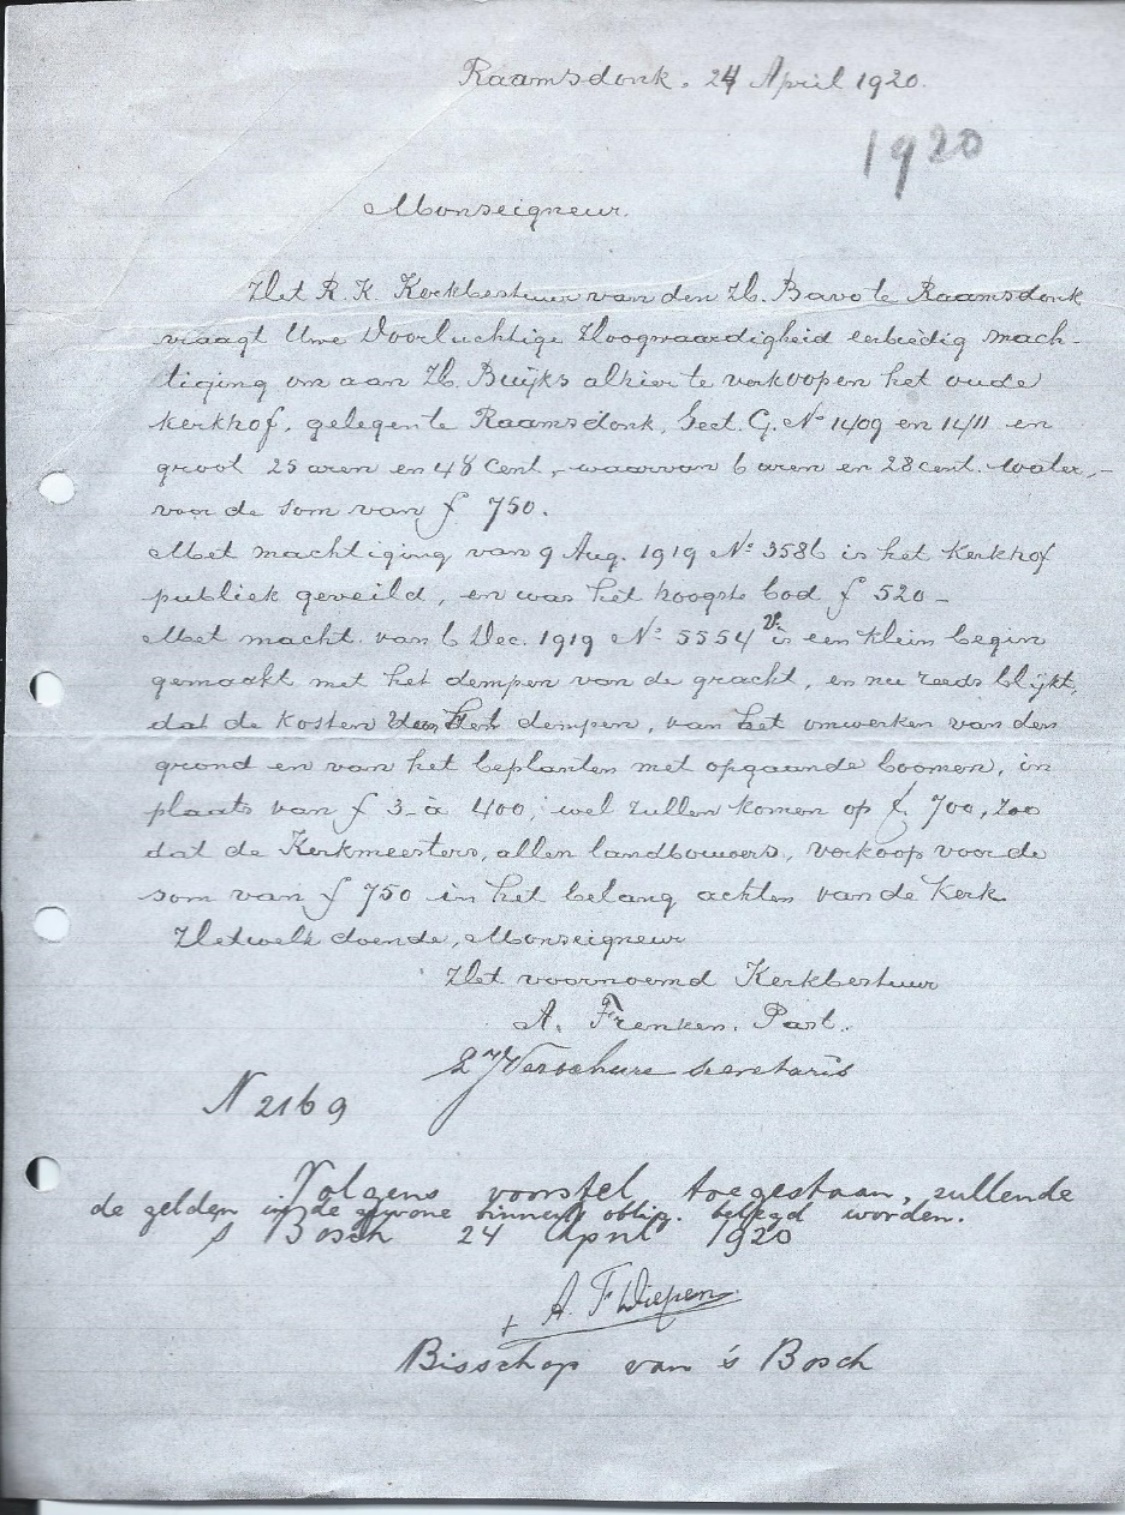 Raamsdonk. 24 April 1920.
1920
Monseigneur.
Het R. K. Kerkbestuur van den H. Bavo te Raamsdonk
vraagt Uwe Doorluchtige Hoogwaardigheid eerbiedig mach-
tiging om aan H. Buijks alhier te verkoopen het oude
kerkhof, gelegen te Raamsdonk, Sect. G. No 1409 en 1411 en
groot 25 aren en 48 Cent, waarvan 6 aren en 28 cent. water,-
voor de som van f 750.
Met machtiging van 9 Aug. 1919 No 3586 is het Kerkhof
publiek geveild, en was het hoogste bod f 520-
Met macht. van 6 Dec. 1919 No 5554 is een klein begin
gemaakt met het dempen van de gracht, en nu reeds blijkt,
dat de kosten van het dempen, van het omwerken van den
grond en van het beplanten met opgaande boomen, in
plaats van f 3- à 400, wel zullen komen op f 700, zoo
dat de Kerkmeesters, allen landbouwers, verkoop voor de
som van f 750 in het belang achten van de Kerk.
Hetwelk doende, Monseigneur
Het voornoemd Kerkbestuur
A. Frenken. Past.
Verschure secretaris
N 2169
Volgens voorstel toegestaan, zullende
de gelden in de gewone binnenl oblig. belegd worden.
s Bosch 24 April 1920
+ A. F Diepen
Bisschop van 's Bosch